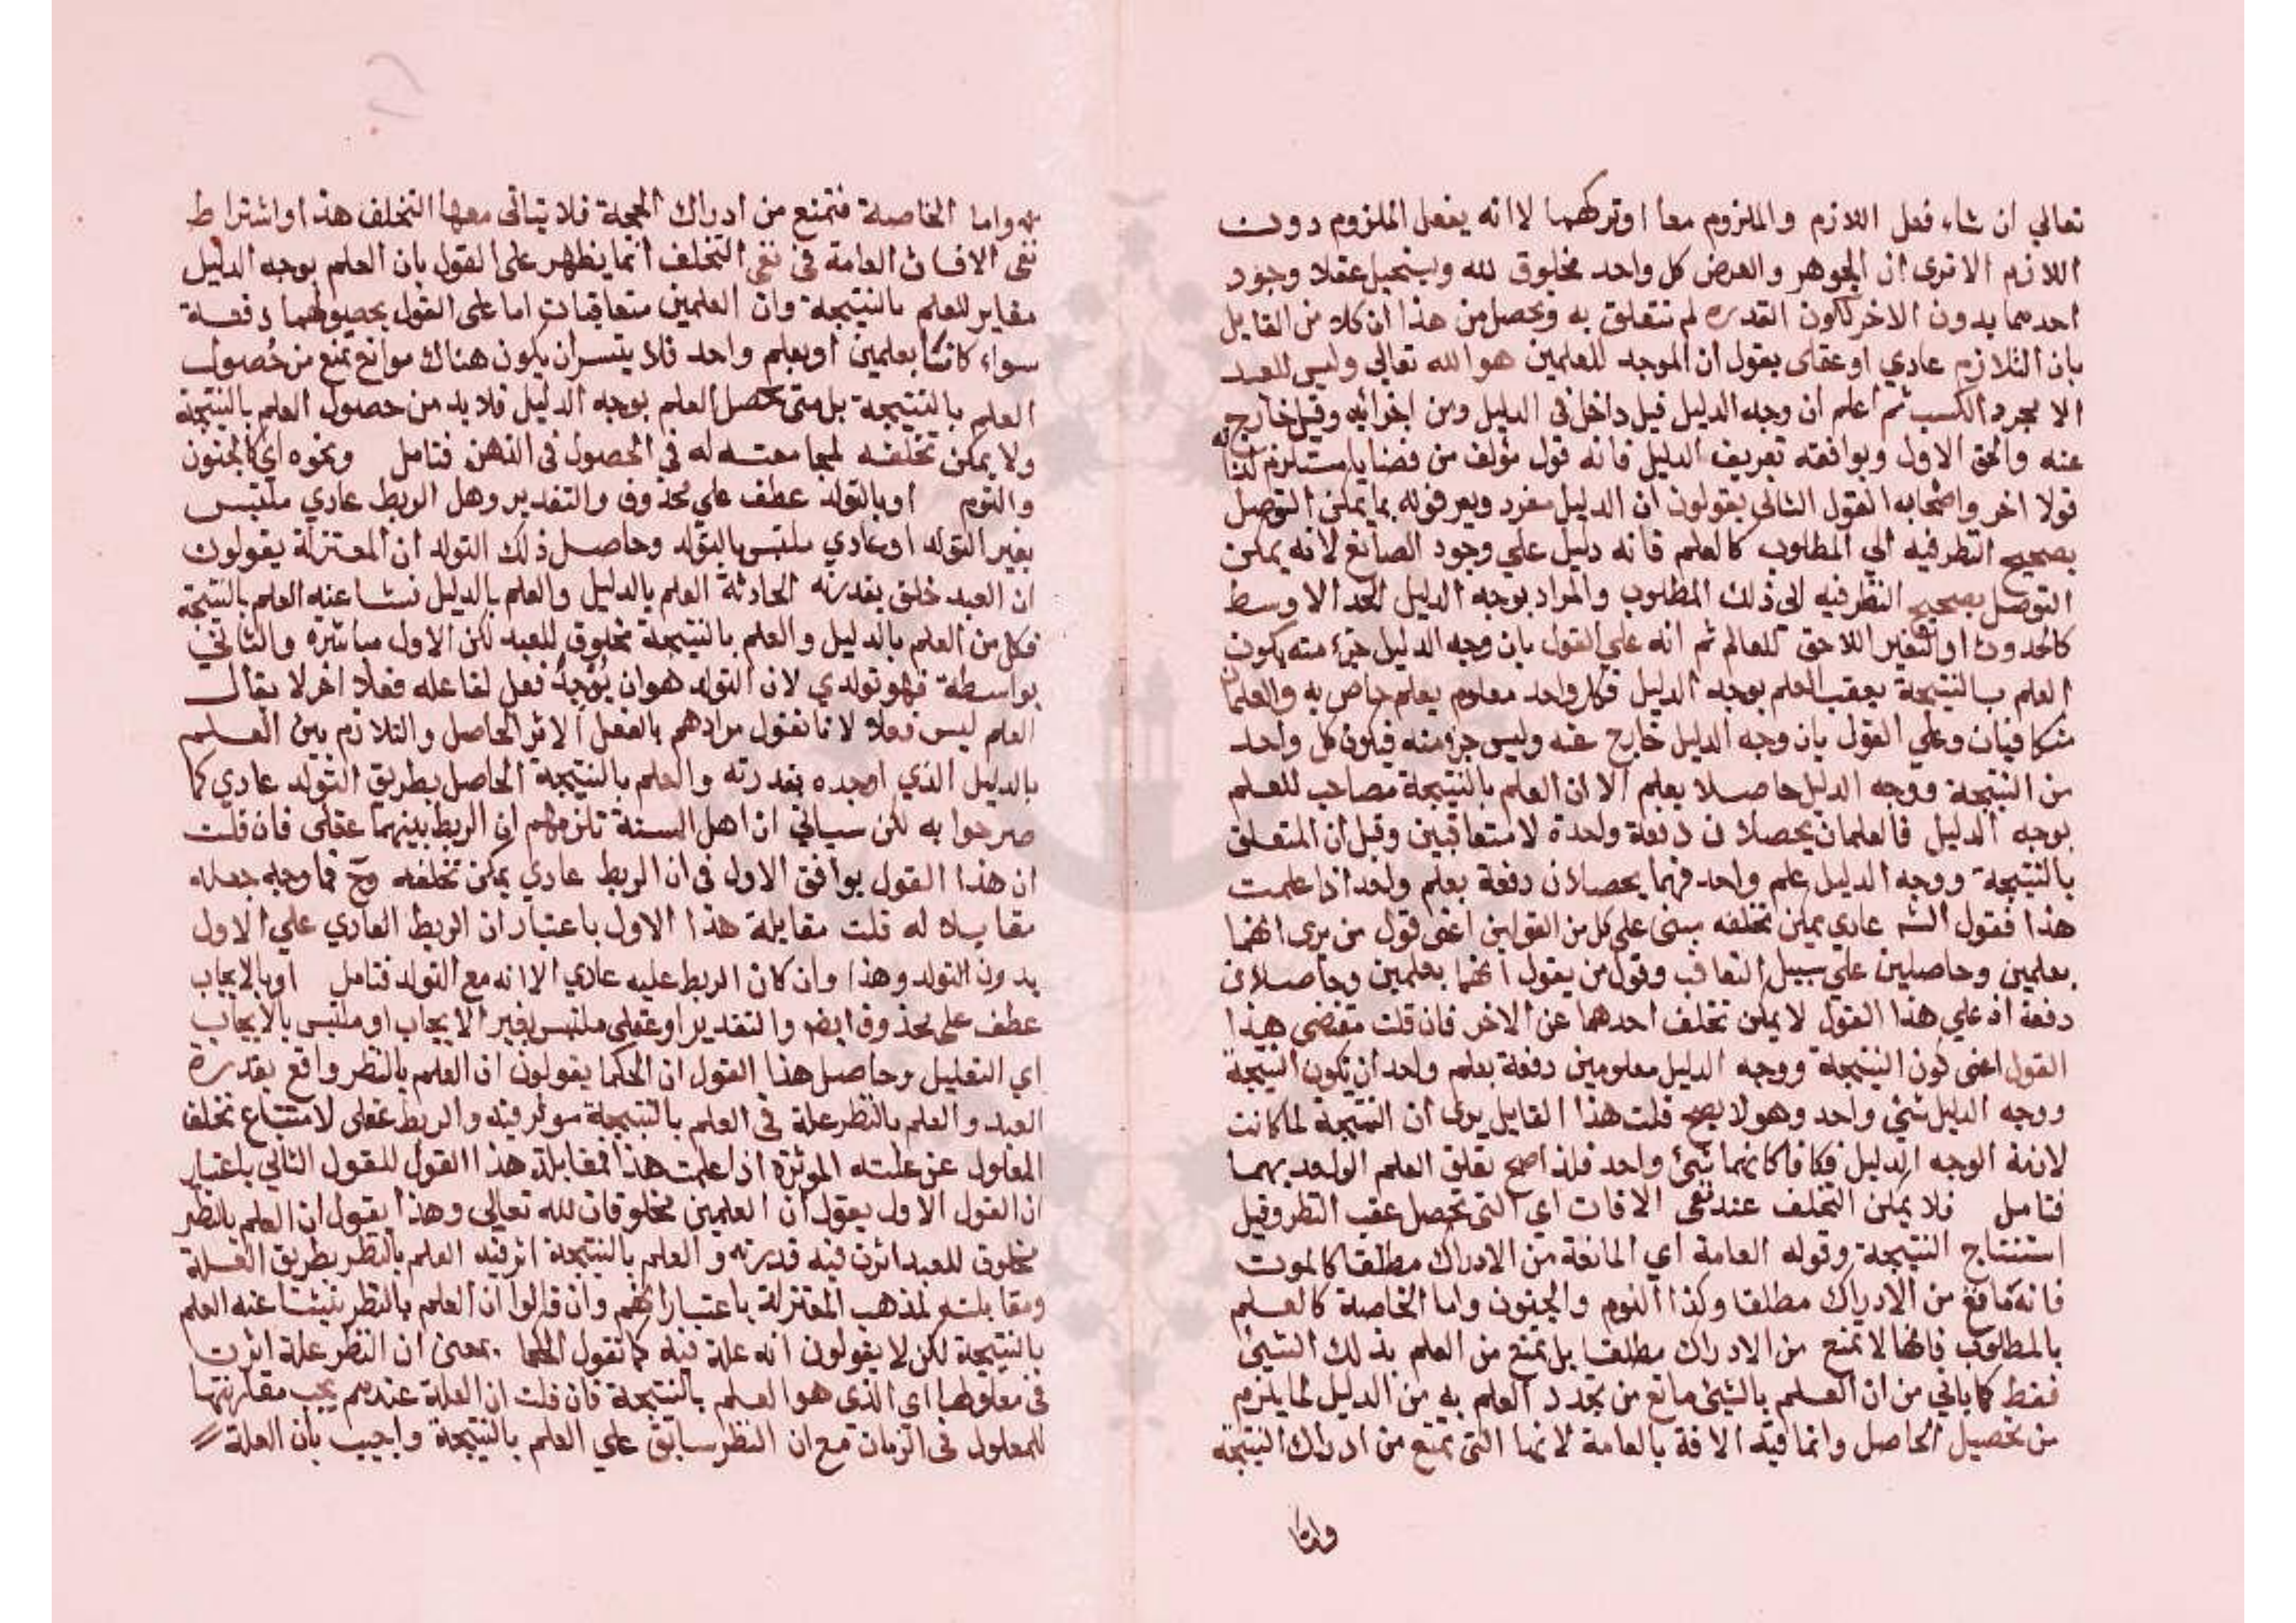 تعالي ان شاء فعل اللازم والملزوم معا اوتركهما لا انه يفعل الملزوم دون
اللازم الا ترى ان الجوهر والعرض كل واحد مخلوق لله ويستحيل عقلا وجود
احدهما بدون الاخر لكون القدره لم تتعلق به وتحصل من هذا ان كلا من القايل
بان التلازم عادي او عقلى يقول ان الموجد للعلمين هو الله تعالي وليس للعبد
الا مجرد الكسب ثم اعلم ان وجه الدليل قيل داخل فى الدليل ومن اجزائه وقيل خارج
عنه والحق الاول ويوافقه تعريف الدليل فانه قول مؤلف من قضايا مستلزم لذاته
قولا اخر واصحاب القول الثانى يقولون ان الدليل مفرد ويعرفونه بما يمكن التوصل
بصحيح النظر فيه الي المطلوب كالعلم فانه دليل علي وجود الصانع لانه يمكن
التوصل بصحيح النظر فيه الى ذلك المطلوب والمراد بوجه الدليل الحد الاوسط
كالحدوث او التغير اللاحق للعالم ثم انه علي القول بان وجه الدليل جزء منه يكون
العلم بالنتيجة يعقب العلم بوجه الدليل فكل واحد معلوم بعلم خاص به والعلمان
متكافيان وعلي القول بان وجه الدليل خارج عنه وليس جزء منه فيكون كل واحد
من النتيجة ووجه الدليل حاصلا بعلم الا ان العلم بالنتيجة مصاحب للعلم
بوجه الدليل فالعلمان يحصلان دفعة واحدة لا متعاقبين وقيل ان المتعلق
بالنتيجة ووجه الدليل علم واحد فهما يحصلان دفعة بعلم واحد اذا علمت
هذا فقول الشه عادي يمكن تخلفه مبنى على كل من القولين اعنى قول من يرى انهما
بعلمين وحاصلين علي سبيل التعاقب وقول من يقول انهما بعلمين وحاصلان
دفعة اذ علي هذا القول لا يمكن تخلف احدهما عن الاخر فان قلت مقتضى هذا
القول اعنى كون النتيجة ووجه الدليل معلومين دفعة بعلم واحد ان تكون النتيجة
ووجه الدليل شئ واحد وهو لا يصح قلت هذا القايل يرى ان النتيجة لما كانت
لازمة لوجه الدليل فكانا كانهما شئ واحد فلذا صح تعلق العلم الواحد بهما
فتامل فلا يمكن التخلف عند نفى الافات اي التى تحصل عقب النظر وقبل
استنتاج النتيجة وقوله العامة اي المانعة من الادراك مطلقا كالموت
فانه مانع من الادراك مطلقا وكذا النوم والجنون واما الخاصة كالعلم
بالمطلوب فانها لا تمنع من الادراك مطلقا بل تمنع من العلم بذلك الشئ
فقط كما ياتي من ان العلم بالشئ مانع من تجدد العلم به من الدليل لما يلزم
من تحصيل الحاصل وانما قيد الافة بالعامة لانها التى تمنع من ادراك النتيجة
واما
واما الخاصة فتمنع من ادراك الحجة فلا يتاتى معها التخلف هذا واشتراط
نفى الافات العامة فى نفى التخلف انما يظهر على القول بان العلم بوجه الدليل
مغاير للعلم بالنتيجة وان العلمين متعاقبان اما على القول بحصولهما دفعة
سواء كانتا بعلمين او بعلم واحد فلا يتسر ان يكون هناك موانع تمنع من حصول
العلم بالنتيجة بل متى تحصل العلم بوجه الدليل فلا بد من حصول العلم بالنتيجة
ولا يمكن تخلفه له فى الحصول فى الذهن فتامل ونحوه اي كالجنون
والنوم او بالتولد عطف علي محذوف والتقدير وهل الربط عادي ملتبس
بغير التولد او عادي ملتبس بالتولد وحاصل ذلك التولد ان المعتزلة يقولون
ان العبد خلق بقدرته الحادثة العلم بالدليل والعلم بالدليل نشا عنه العلم بالنتيجة
فكل من العلم بالدليل والعلم بالنتيجة مخلوق للعبد لكن الاول مباشرة والثاني
بواسطة فهو تولدي لان التولد هو ان يُوجِدُ فعل لفاعله فعلا اخر لا يقال
العلم ليس فعلا لانا نقول مرادهم بالفعل الاثر الحاصل والتلازم بين العلم
بالدليل الذي اوجده بقدرته والعلم بالنتيجة الحاصل بطريق التولد عادي كما
صرحوا به لكن سياتي ان اهل السنة تلزمهم ان الربط بينهما عقلى فان قلت
ان هذا القول يوافق الاول فى ان الربط عادي يمكن تخلفه وح فما وجه جعله
مقابلا له قلت مقابلة هذا الاول باعتبار ان الربط العادي علي الاول
بدون التولد وهذا وان كان الربط عليه عادي الا انه مع التولد فتامل او بالايجاب
عطف على محذوف ايضا والتقدير او عقلى ملتبس بغير الايجاب او ملتبس بالايجاب
اي التعليل وحاصل هذا القول ان الحكما يقولون ان العلم بالنظر واقع بقدرة
العبد والعلم بالنظر علة فى العلم بالنتيجة موثر فيه والربط عقلى لامتناع تخلف
المعلول عن علته الموثرة اذا علمت هذا فمقابلة هذا القول للقول الثاني باعتبار
ان القول الاول يقول ان العلمين مخلوقان لله تعالى وهذا يقول ان العلم بالنظر
مخلوق للعبد اثرت فيه قدرته والعلم بالنتيجة اثر فيه العلم بالنظر بطريق العلة
ومقابلته لمذهب المعتزلة باعتبار انهم وان قالوا ان العلم بالنظر ينشا عنه العلم
بالنتيجة لكن لا يقولون انه علة فيه كما تقول الحكما بمعنى ان النظر علة اثرت
فى معلولها اي الذى هو العلم بالنتيجة فان قلت ان العلة عندهم يجب مقارنتها
للمعلول فى الزمان مع ان النظر سابق علي العلم بالنتيجة واجيب بان العلة